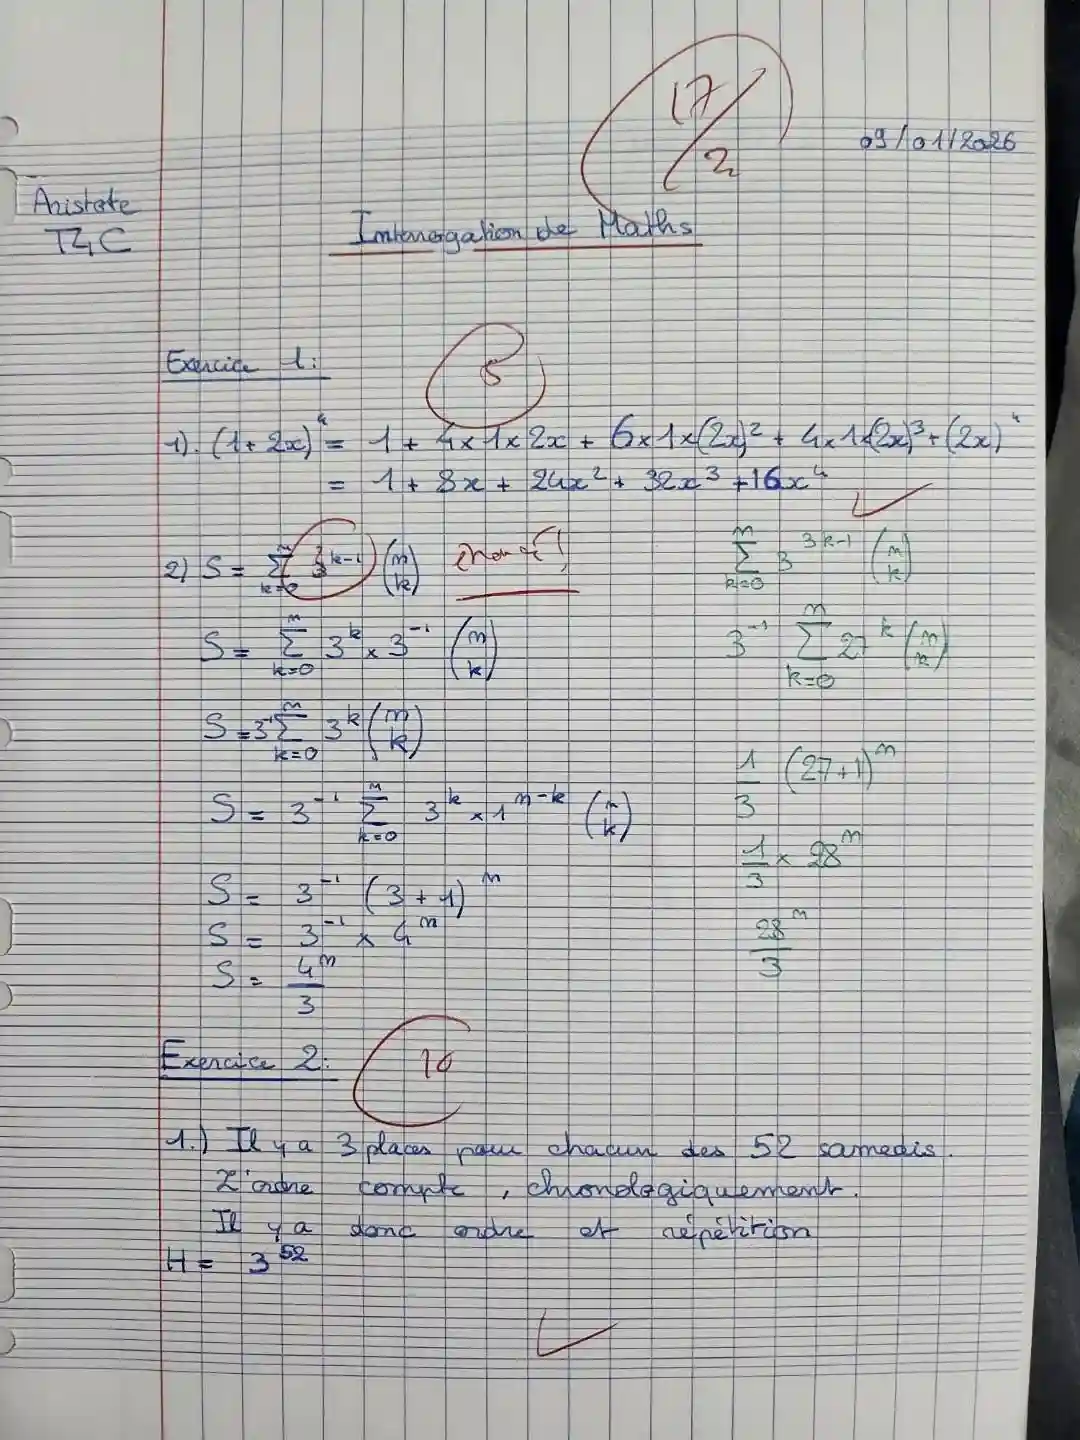 17/2
09/01/2026
Aristote
TG C
Interrogation de Maths
Exercice 1:
5
1). (1+2x)⁴ = 1 + 4x1x2x + 6x1x(2x)² + 4x1x(2x)³ + (2x)⁴
= 1 + 8x + 24x² + 32x³ + 16x⁴
2) S = Σ_{k=0}^{n} 3^{k-1} (n k)
S = Σ_{k=0}^{n} 3^k x 3^{-1} (n k)
S = 3^{-1} Σ_{k=0}^{n} 3^k (n k)
S = 3^{-1} Σ_{k=0}^{n} 3^k x 1^{n-k} (n k)
S = 3^{-1} (3+1)^n
S = 3^{-1} x 4^n
S = 4^n/3
Σ_{k=0}^{n} 3^{3k-1} (n k)
3^{-1} Σ_{k=0}^{n} 27^k (n k)
1/3 (27+1)^n
1/3 x 28^n
28^n/3
Exercice 2:
10
1.) Il y a 3 places pour chacun des 52 samedis.
L'ordre compte, chronologiquement.
Il y a donc ordre et répétition
H = 3^{52}